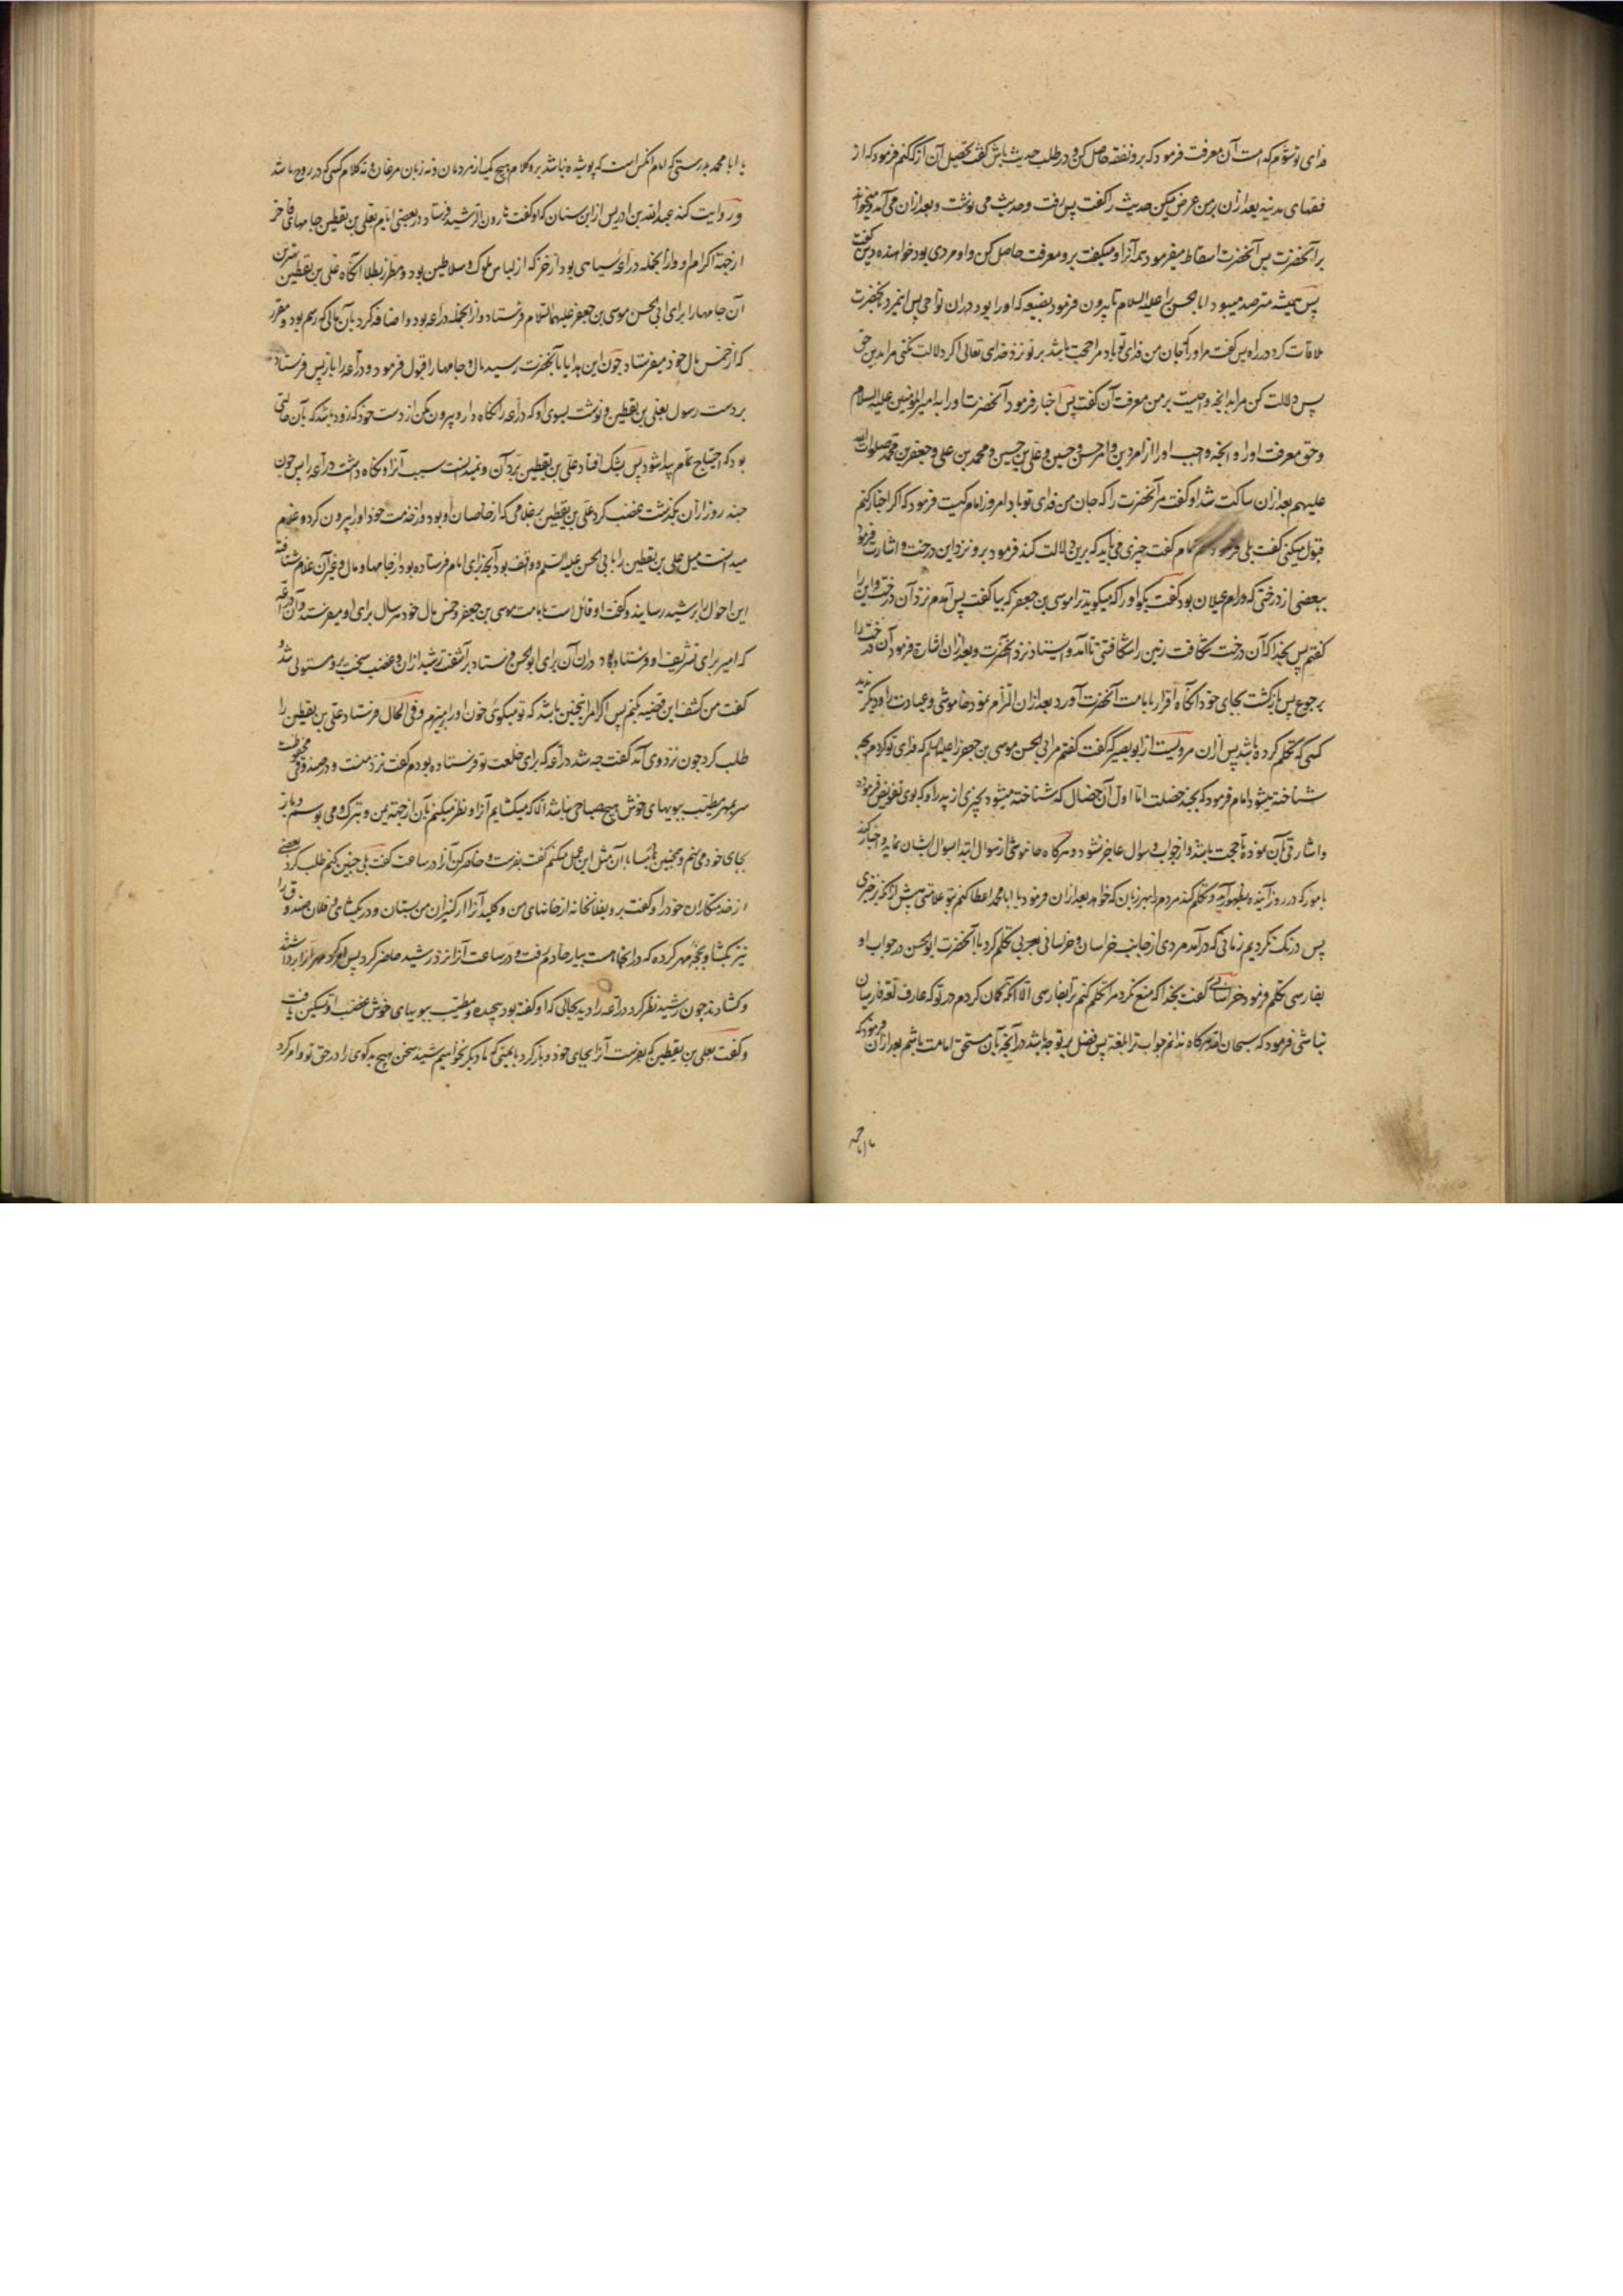 فدای تو شوم که است آن معرفت فرمود که برو تفقه حاصل کن و در طلب حدیث باش گفت تحصیل آن از که کنم فرمود که از
فقهای مدینه بعد ازان بر من عرض میکن حدیث را گفت پس رفت و حدیث می نوشت و بعد ازان می آمد و میخواند
بر آنحضرت پس آنحضرت اسقاط میفرمود همه آنرا و میگفت برو معرفت حاصل کن و او مردی بود خواهنده دین گفت
پس همیشه مترصد میبود ابا الحسن را علیه السلام تا بیرون فرمود بضیعه که او را بود دران نواحی پس انمرد بحضرت
ملاقات کرد در راه پس گفت مر او را که جان من فدای تو باد مرا حجت باشد بر تو نزد خدای تعالی اگر دلالت نکنی مرا بدین حق
پس دلالت کن مرا بدانچه واجبست بر من معرفت آن گفت پس اخبار فرمود آنحضرت او را به امیر المؤمنین علیه السلام
و حق معرفت او را و آنچه واجب او را از امر دین و امر حسن و حسین و علی بن حسین و محمد بن علی و جعفر بن محمد صلوات الله
علیهم بعد ازان ساکت شد او گفت مر آنحضرت را که جان من فدای تو باد امروز امام کیست فرمود که اگر اخبار کنم
قبول میکنی گفت بلی فرمود منم امام گفت چیزی می باید که برین دلالت کند فرمود برو نزد این درخت و اشارت فرمود
ببعضی از درختی که درام غیلان بود گفت بگو او را که میگوید ترا موسی بن جعفر که بیا گفت پس آمدم نزد آن درخت و این را
گفتم پس بخدا که آن درخت شکافت زمین را شکافتنی تا آمد و ایستاد نزد آنحضرت و بعد ازان اشارة فرمود آن درخت را
برجوع پس بازگشت بجای خود آنگاه اقرار بامامت آنحضرت آورد بعد ازان التزام نمود خاموشی و عبادت را و دیگر ندید
کسی که تکلم کرده باشد پس ازان مرویست از ابو بصیر که گفت گفتم مر ابی الحسن موسی بن جعفر را علیهما السلام که فدای تو گردم بچه
شناخته میشود امام فرمود که بچند خصلت اما اول آن خصال که شناخته میشود بچیزی از پدر او که بوی تفویض فرموده
و اشارتی بآن نموده تا حجت باشد و از جواب و سوال عاجز نشود و هرگاه خاموشی از سوال ابتدا بسوال ایشان نماید و اخبار کند
بامور که در روز آینده بظهور آید و تکلم کند مردم را بهر زبان که خواهد بعد ازان فرمود یا ابا محمد اعطا کنم بتو علامتی پیش از آنکه برخیزی
پس درنگ نکردیم زمانی که در آمد مردی از جانب خراسان و خراسانی بعربی تکلم کرد با آنحضرت ابو الحسن در جواب او
بفارسی تکلم فرمود خراسانی گفت بخدا که منع نکرد مرا که تکلم کنم ترا بفارسی الا آنکه گمان کردم در تو که عارف لغة فارسیان
نباشی فرمود که سبحان الله هرگاه ندانم جواب ترا بلغة پس فضل بر تو چه باشد در آنچه بآن مستحق امامت باشم بعد ازان فرمود که
یا ابا محمد
یا ابا محمد بدرستی که امام آنکس است که پوشیده نباشد برو کلام هیچ یک از مردمان و نه زبان مرغان و نه کلام کسی که در روح باشد
و روایت کند عبدالله بن ادریس از ابن سنان که او گفت هارون الرشید فرستاد در بعضی ایام بعلی بن یقطین جامهای فاخر
از جهة اکرام او و از آنجمله دراعه سیاهی بود از خز که از لباس ملوک و سلاطین بود و مطرز بطلا آنگاه علی بن یقطین
آن جامها را برای ابی الحسن موسی بن جعفر علیهما السلام فرستاد و از آنجمله دراعه بود و اضافه کرد بآن مالی که رسم بود و مقرر
که از خمس مال خود میفرستاد چون این هدایا بآنحضرت رسید مال و جامها را قبول فرمود و دراعه را باز پس فرستاد
بر دست رسول بعلی بن یقطین و نوشت بسوی او که دراعه را نگاه دار و بیرون مکن از دست خود که زود باشد که بآن حالتی
بود که احتیاج تمام پیدا شود پس بشک افتاد علی بن یقطین برد آن و نمیدانست سبب آنرا و نگاه داشت دراعه را پس چون
چند روز از آن بگذشت غضب کرد علی بن یقطین بر غلامی که از خاصان او بود و از خدمت خود او را بیرون کرد و غلام
میدانست میل علی بن یقطین را بابی الحسن علیه السلام و واقف بود آنچه برای امام فرستاده بود از جامها و مال و غیر آن غلام شتافت
این احوال را برشید رسانید و گفت او قائل است بامامت موسی بن جعفر و خمس مال خود هر سال برای او میفرستد و آن دراعه
که امیر برای تشریف او فرستاد دران آن برای ابو الحسن فرستاد بر آشفت رشید ازان و غضب سخت برو مستولی شد
گفت من کشف این قضیه بکنم پس اگر امر اینچنین باشد که تو میگوئی خون او را بریزم و فی الحال فرستاد علی بن یقطین را
طلب کرد چون نزد وی آمد گفت چه شد دراعه که برای خلعت تو فرستاده بودم گفت نزد منست و در صندوقی محفوظ
سر بمهر مطیب ببویهای خوش هیچ صباحی نباشد الا که میگشایم آنرا و نظر میکنم بآن از جهة تیمن و تبرک و می بوسم و باز
بجای خود می نهم و همچنین هر شبانگاه بآن مثل این عمل میکنم گفت بفرست و حاضر کن آنرا در ساعت گفت بلی چنین کنم طلب کرد بعضی
از خدمتکاران خود را و گفت برو بفلانخانه از خانهای من و کلید آنرا از کنیزان من بستان و در بگشای و فلان صندوق را
نیز بگشا و بقچه مهر کرده که در آنجاست بیار خادم رفت و در ساعت آنرا نزد رشید حاضر کرد پس امر کرد مهر آنرا برداشتند
و گشادند چون رشید نظر کرد دراعه را دید بحالی که او گفته بود پیچیده و مطیب ببویهای خوش غضب او تسکین یافت
و گفت بعلی بن یقطین که بفرست آنرا بجای خود و باز گرد بایمنی که ما دیگر نخواهیم شنید سخن هیچ بدگوی را در حق تو و امر کرد